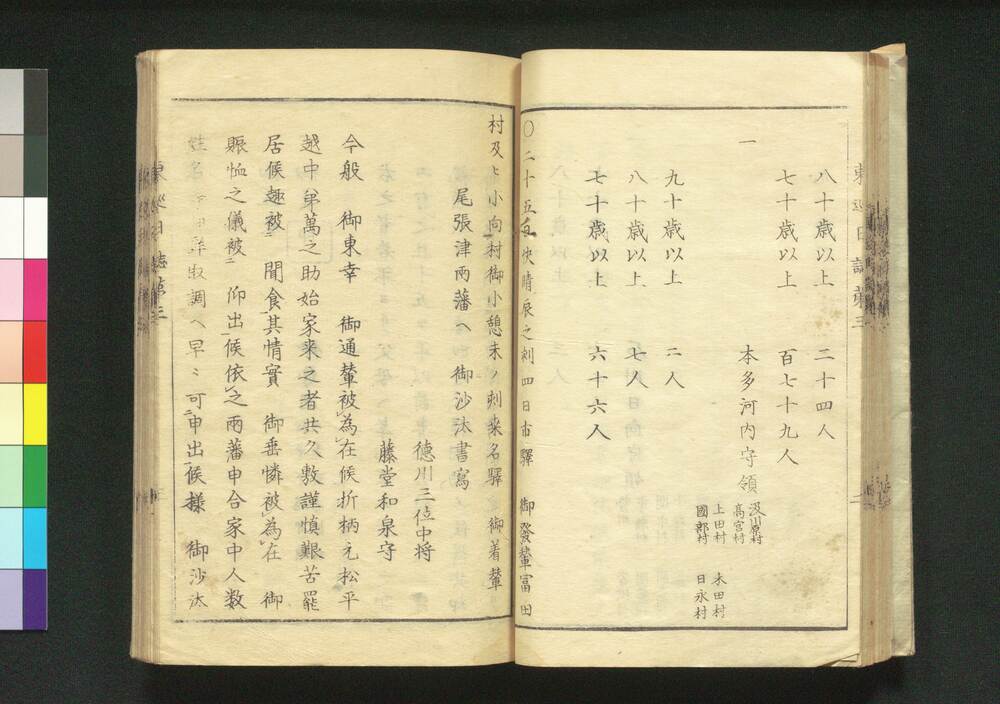 八十歳以上　二十四人
七十歳以上　百七十九人
一　本多河内守領　汲川原村
高宮村
上田村　木田村
國郡村　日永村
九十歳以上　二人
八十歳以上　七人
七十歳以上　六十六人
〇二十五日快晴辰之刻四日市驛　御發輦富田
村及ヒ小向村御小憩未ノ刻桒名驛　御着輦
尾張津兩藩ヘ御沙汰書寫
徳川三位中将
藤堂和泉守
今般　御東幸　御通輦被爲在候折柄元松平
越中弟萬之助始家来之者共久敷謹慎艱苦罷
居候趣被　聞食其情實　御垂憐被爲在　御
賑恤之儀被　仰出候依之兩藩申合家中人数
姓名等取調ヘ早々可申出候様　御沙汰